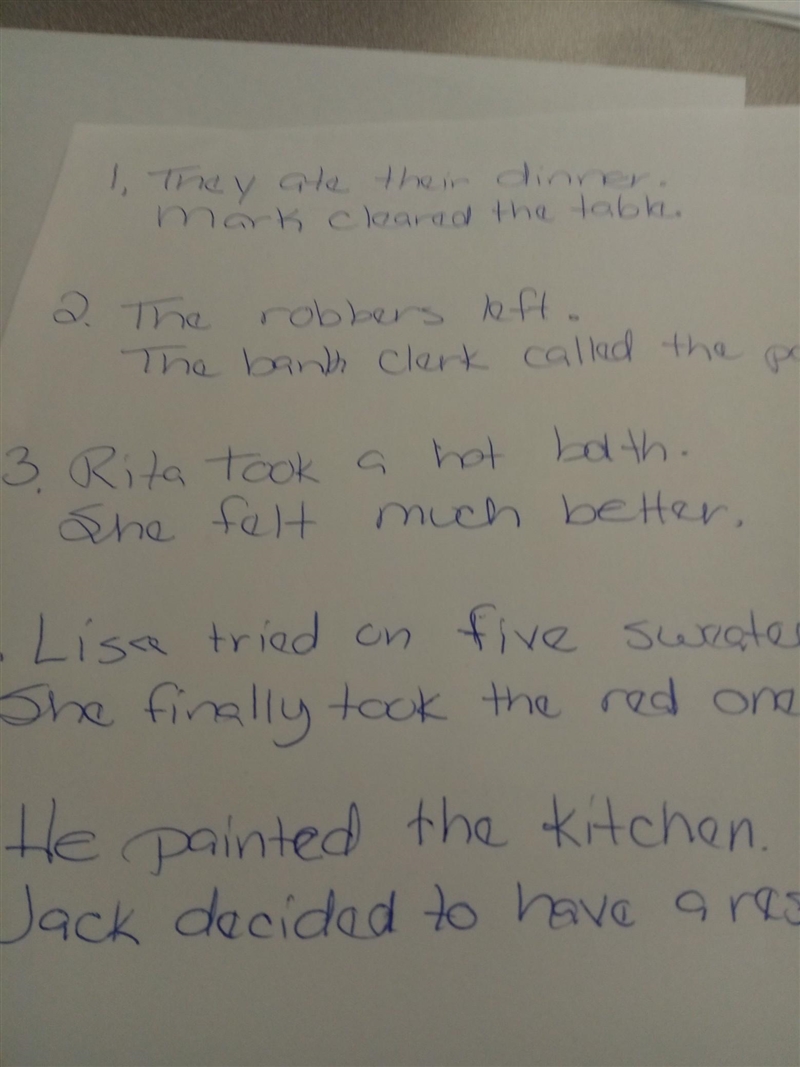 1. They ate their dinner.
Mark cleared the table.
2. The robbers left.
The bank clerk called the
3. Rita took a hot bath.
She felt much better.
. Lisa tried on five
She finally took the red one
He painted the kitchen.
Jack decided to have a